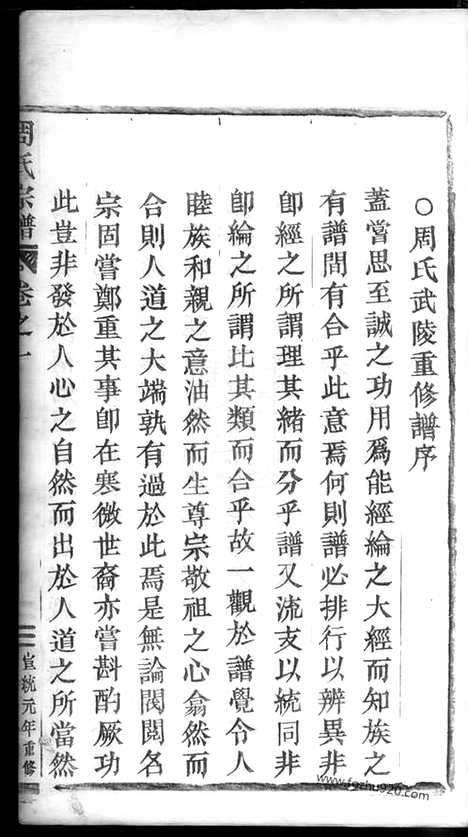 ○周氏武陵重修譜序
蓋嘗思至誠之功用爲能經綸之大經而知族之
有譜間有合乎此意焉何則譜必排行以辨異非
卽經之所謂理其緒而分乎譜又流支以統同非
卽綸之所謂比其類而合乎故一觀於譜覺令人
睦族和親之意油然而生尊宗敬祖之心翕然而
合則人道之大端孰有過於此焉是無論閥閱名
宗固嘗鄭重其事卽在寒微世裔亦嘗斟酌厥功
此豈非發於人心之自然而出於人道之所當然
周氏宗譜 卷之一 宣統元年重修
www.fgzhu920.com